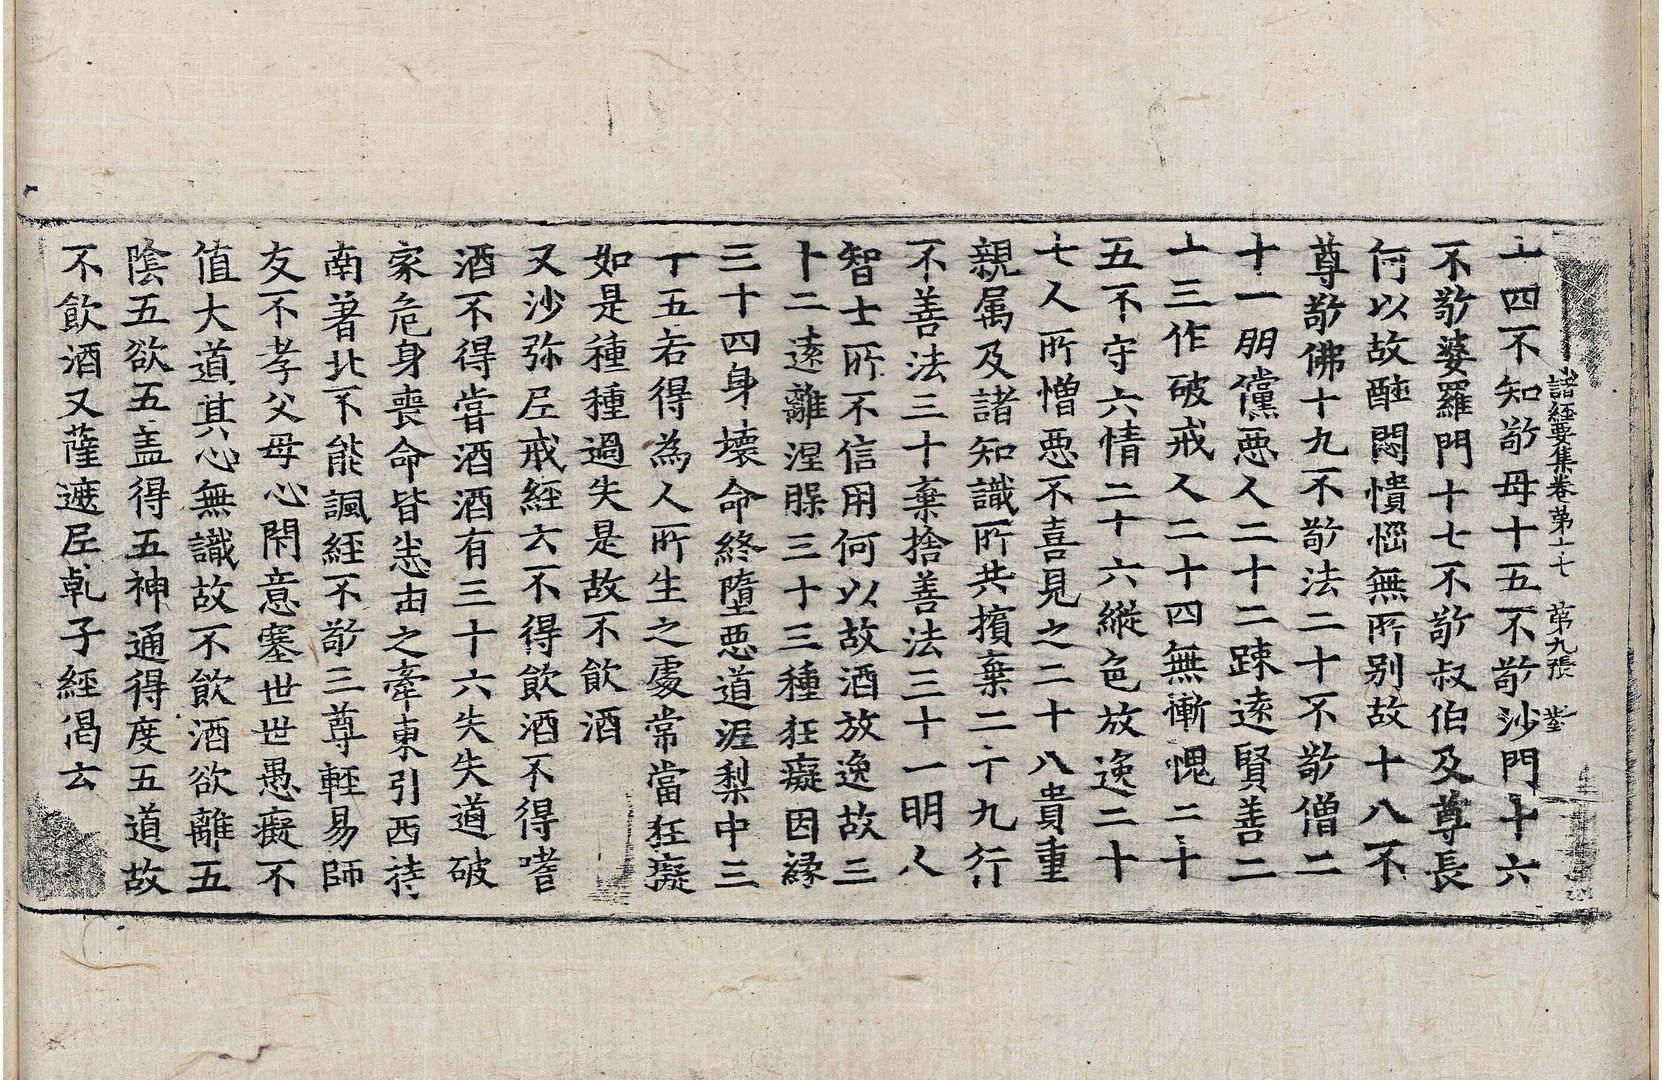 諸經要集卷第十七 第九張 㘽
十四不知敬母十五不敬沙門十六
不敬婆羅門十七不敬叔伯及尊長
何以故醉悶憒惱無所别故十八不
尊敬佛十九不敬法二十不敬僧二
十一朋儻惡人二十二踈遠賢善二
十三作破戒人二十四無慚愧二十
五不守六情二十六縱色放逸二十
七人所憎惡不喜見之二十八貴重
親属及諸知識所共擯棄二十九行
不善法三十棄捨善法三十一明人
智士所不信用何以故酒放逸故三
十二遠離涅槃三十三種狂癡因縁
三十四身壞命終墮惡道泥梨中三
十五若得為人所生之處常當狂癡
如是種種過失是故不飲酒
又沙弥尼戒經云不得飲酒不得嗜
酒不得嘗酒酒有三十六失失道破
家危身喪命皆悉由之牽東引西持
南著北不能諷經不敬三尊輕易師
友不孝父母心閇意塞世世愚癡不
值大道其心無識故不飲酒欲離五
陰五欲五盖得五神通得度五道故
不飲酒又薩遮尼乹子經偈云